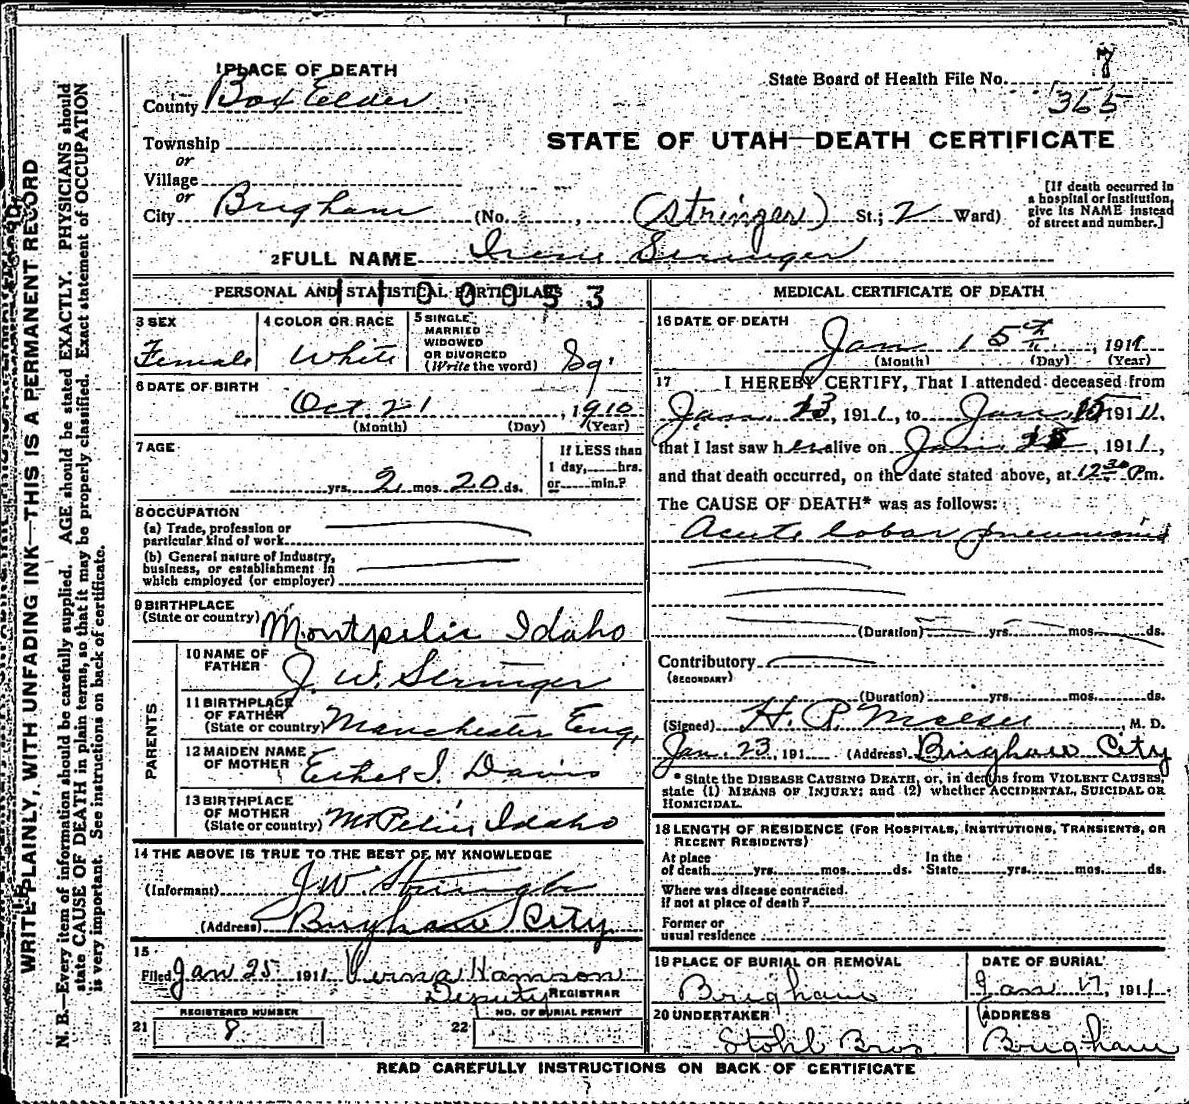 1 PLACE OF DEATH
County Box Elder
State Board of Health File No. 7
365
STATE OF UTAH—DEATH CERTIFICATE
Township
or
Village
or
City Brigham (No. , (Stringer) St.; 2 Ward)
[If death occurred in a hospital or institution, give its NAME instead of street and number.]
2 FULL NAME Irene Stringer
PERSONAL AND STATISTICAL PARTICULARS
1100053
3 SEX
Female
4 COLOR OR RACE
White
5 SINGLE
MARRIED
WIDOWED
OR DIVORCED
(Write the word) Sg'
6 DATE OF BIRTH
Oct. 21, 1910
(Month) (Day) (Year)
7 AGE
yrs. 2 mos. 20 ds.
If LESS than
1 day, hrs.
or min.?
8 OCCUPATION
(a) Trade, profession or
particular kind of work
(b) General nature of Industry,
business, or establishment in
which employed (or employer)
9 BIRTHPLACE
(State or country) Montpelier Idaho
PARENTS
10 NAME OF
FATHER J. W. Stringer
11 BIRTHPLACE
OF FATHER
(State or country) Manchester Eng.
12 MAIDEN NAME
OF MOTHER Ethel I. Davis
13 BIRTHPLACE
OF MOTHER
(State or country) Mt Pelier Idaho
14 THE ABOVE IS TRUE TO THE BEST OF MY KNOWLEDGE
(Informant) J W. Stringer
(Address) Brigham City
15
Filed Jan 25 1911 Verna Hamson
Deputy REGISTRAR
REGISTERED NUMBER
21 8
NO. OF BURIAL PERMIT
22
MEDICAL CERTIFICATE OF DEATH
16 DATE OF DEATH
Jan 15th, 1911
(Month) (Day) (Year)
17 I HEREBY CERTIFY, That I attended deceased from
Jan. 13, 1911, to Jan. 15 1911,
that I last saw her alive on Jan. 15, 1911,
and that death occurred, on the date stated above, at 12 30 P m.
The CAUSE OF DEATH* was as follows:
Acute lobar pneumonia
(Duration) yrs. mos. ds.
Contributory
(SECONDARY)
(Duration) yrs. mos. ds.
(Signed) H. P. M. D.
Jan. 23, 191 (Address) Brigham City
* State the DISEASE CAUSING DEATH, or, in deaths from VIOLENT CAUSES,
state (1) MEANS OF INJURY; and (2) whether ACCIDENTAL, SUICIDAL OR
HOMICIDAL.
18 LENGTH OF RESIDENCE (FOR HOSPITALS, INSTITUTIONS, TRANSIENTS, OR
RECENT RESIDENTS)
At place
of death yrs. mos. ds.
In the
State yrs. mos. ds.
Where was disease contracted,
if not at place of death?
Former or
usual residence
19 PLACE OF BURIAL OR REMOVAL
Brigham
DATE OF BURIAL
Jan 17, 1911
20 UNDERTAKER
Stohl Bros
ADDRESS
Brigham
READ CAREFULLY INSTRUCTIONS ON BACK OF CERTIFICATE
WRITE PLAINLY, WITH UNFADING INK—THIS IS A PERMANENT RECORD
N. B.—Every item of information should be carefully supplied. AGE should be stated EXACTLY. PHYSICIANS should
state CAUSE OF DEATH in plain terms, so that it may be properly classified. Exact statement of OCCUPATION
is very important. See instructions on back of certificate.